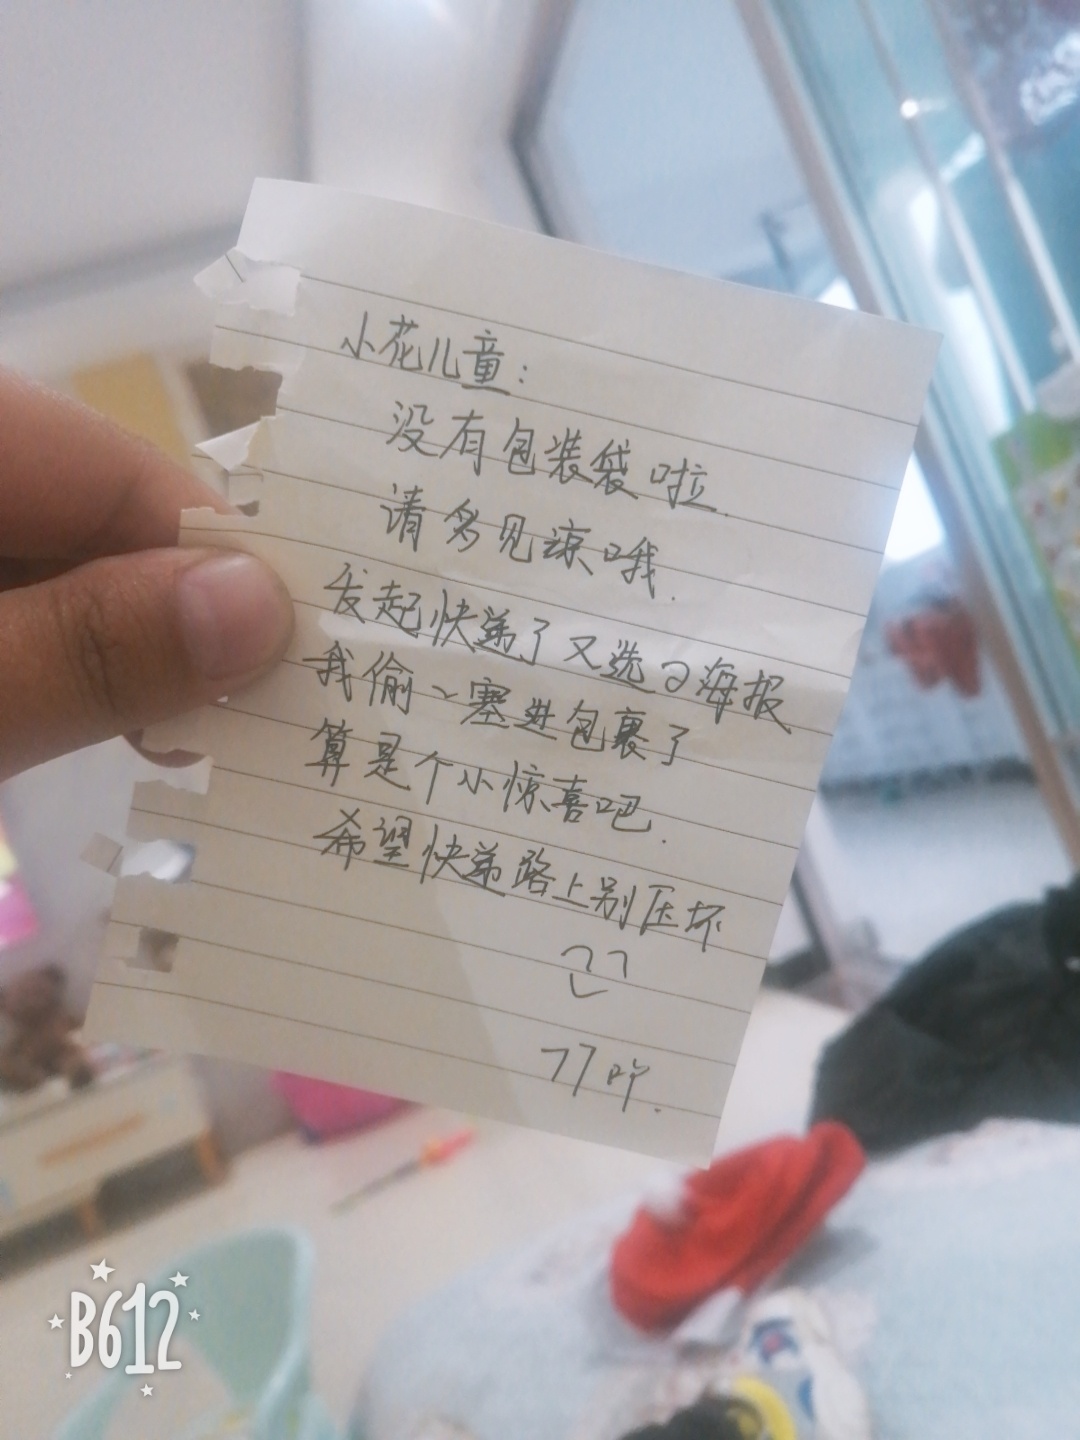 小花儿童：
没有包装袋啦.
请多见谅哦.
发起快递了又送 海报
我偷 塞进包裹了
算是个小惊喜吧.
希望快递路上别压坏
77吖.
B612